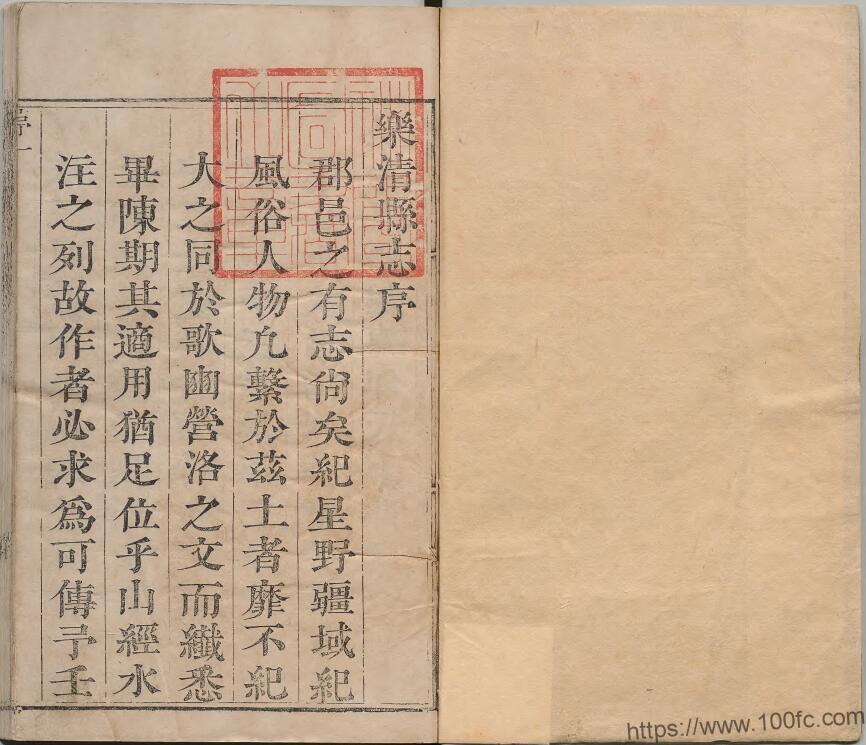 樂清縣志序
郡邑之有志尚矣紀星野疆域紀
風俗人物凡繫於茲土者靡不紀
大之同於歌豳營洛之文而纖悉
畢陳期其適用猶足位乎山經水
注之列故作者必求為可傳予壬
序一
https://www.100fc.com